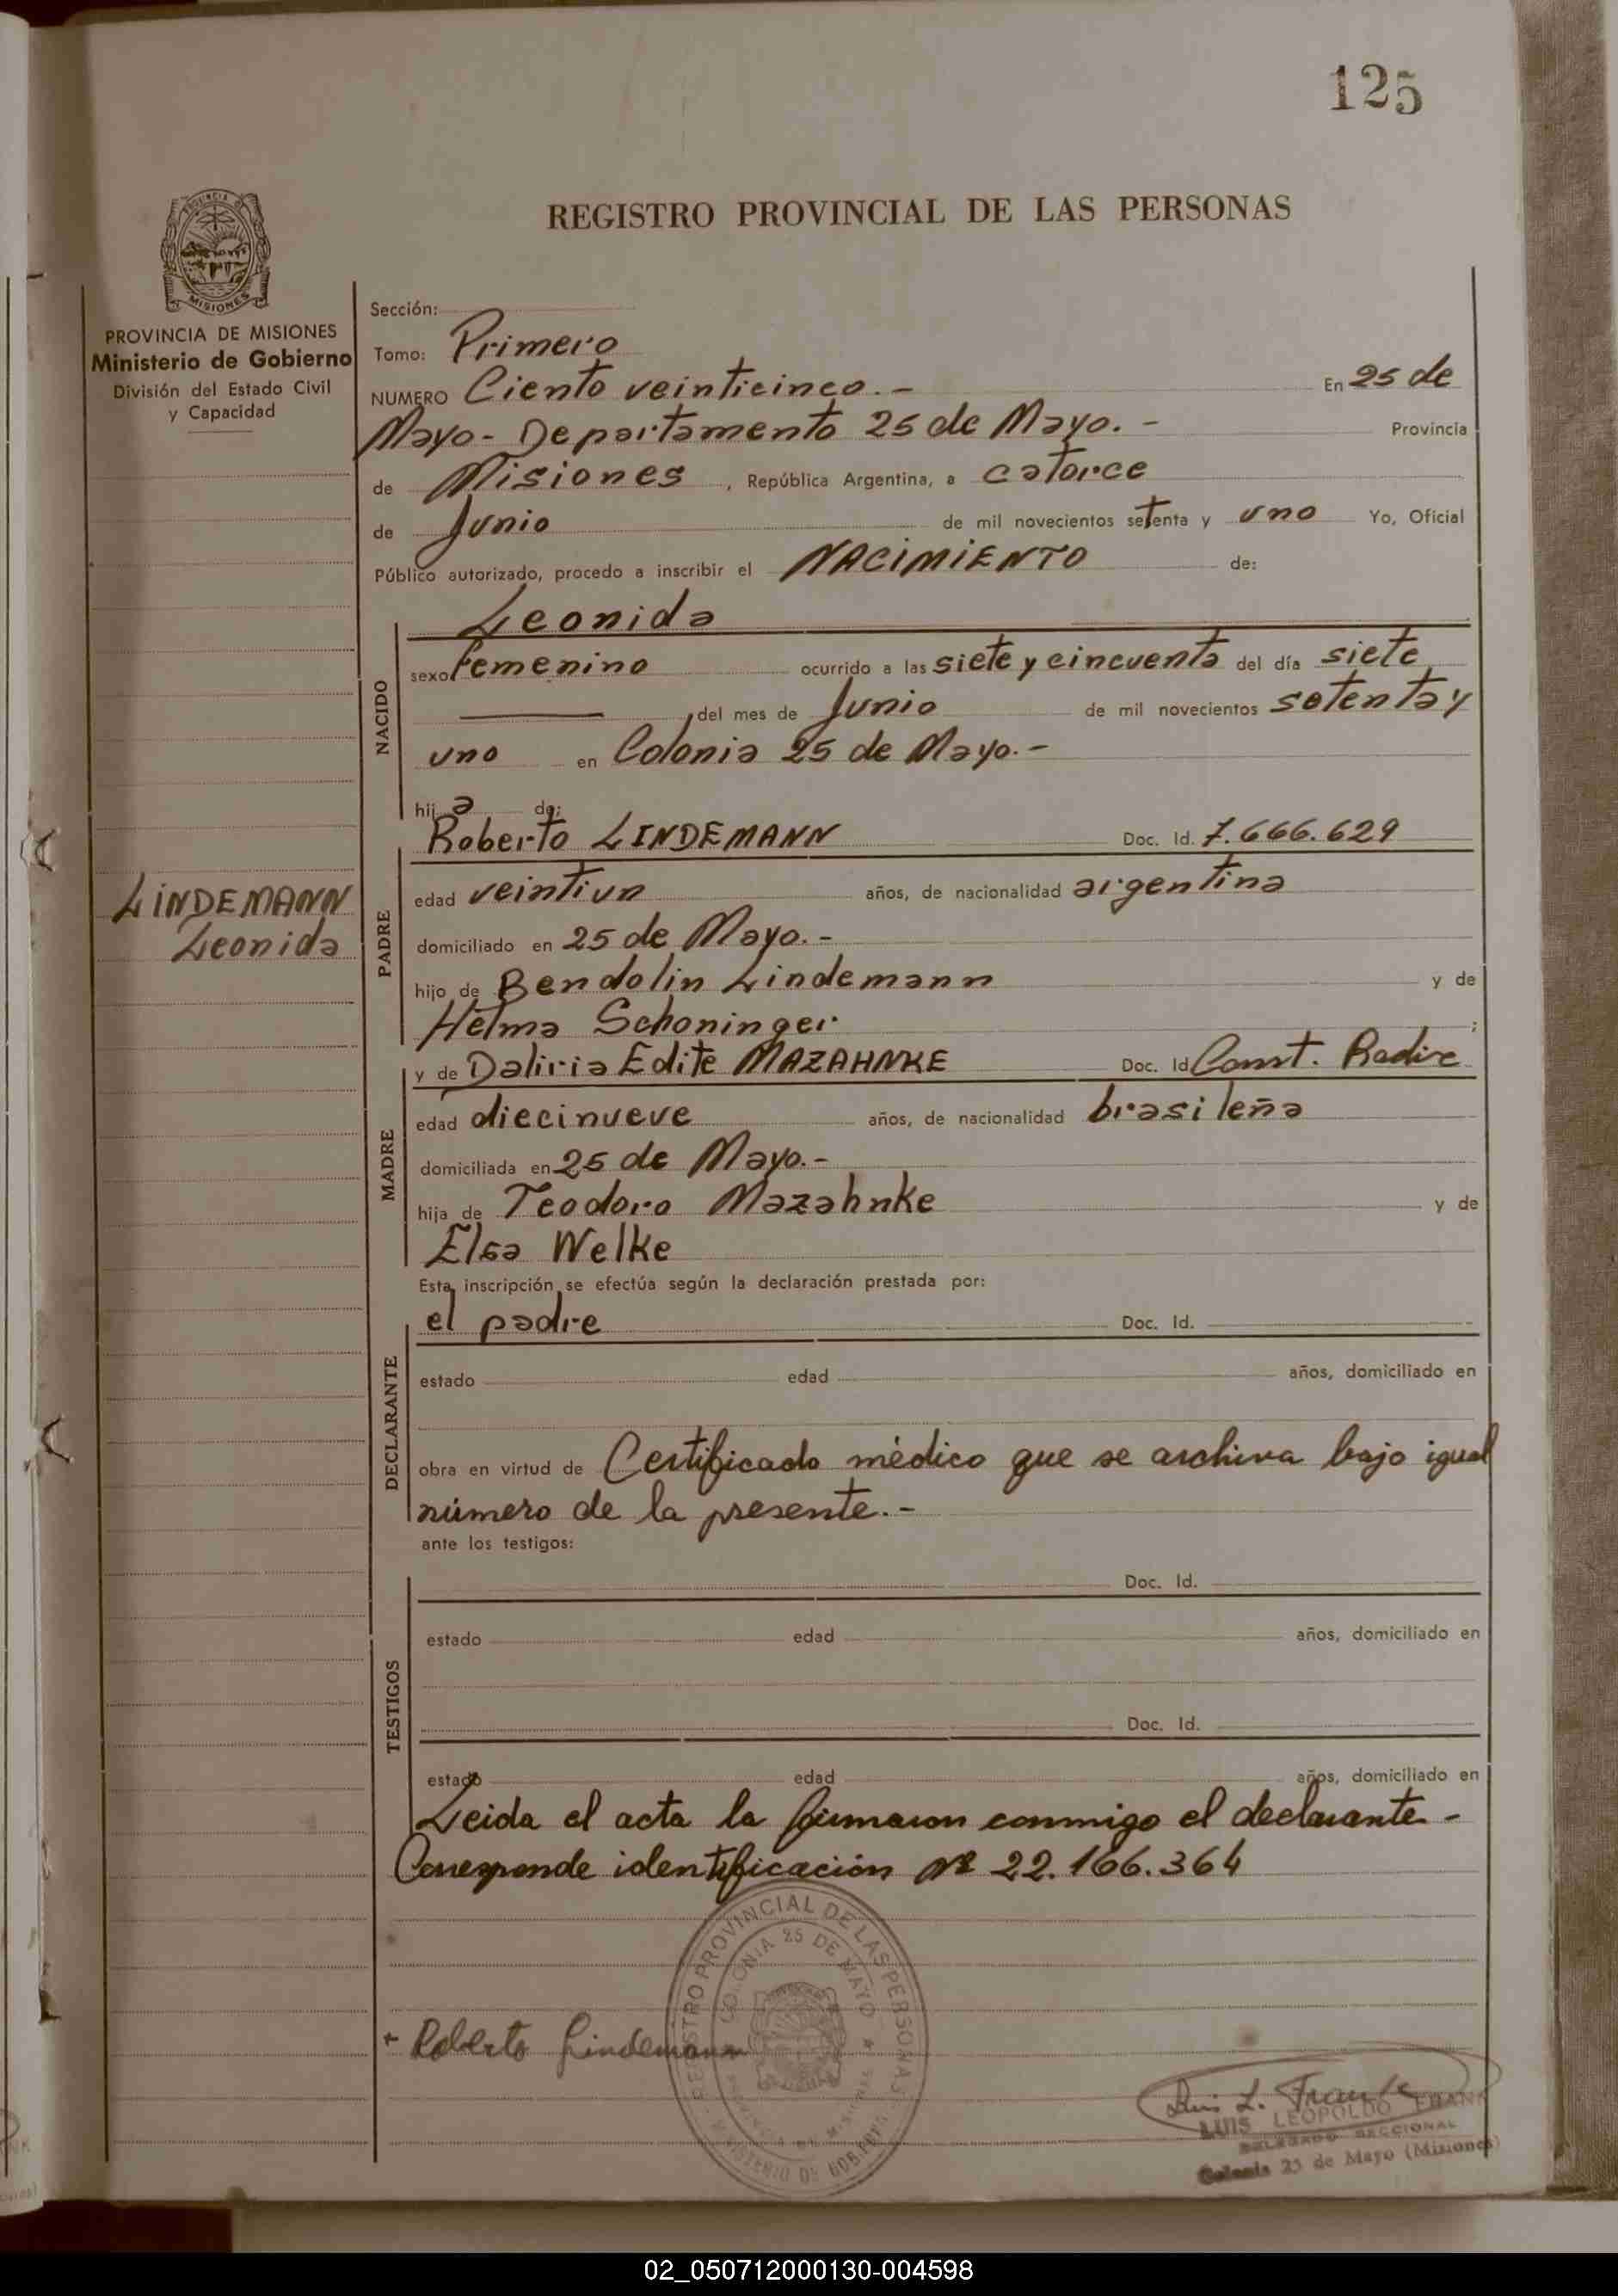 125
REGISTRO PROVINCIAL DE LAS PERSONAS
PROVINCIA DE MISIONES
Ministerio de Gobierno
División del Estado Civil
y Capacidad
Sección:
Tomo: Primero
NUMERO Ciento veinticinco.- En 25 de
Mayo- Departamento 25 de Mayo.- Provincia
de Misiones, República Argentina, a catorce
de Junio de mil novecientos setenta y uno Yo, Oficial
Público autorizado, procedo a inscribir el NACIMIENTO de:
NACIDO
Leonida
sexo femenino ocurrido a las siete y cincuenta del día siete
del mes de Junio de mil novecientos setenta y
uno en Colonia 25 de Mayo.-
hija de:
LINDEMANN
Leonida
PADRE
Roberto LINDEMANN Doc. Id. 7.666.629
edad veintiun años, de nacionalidad argentina
domiciliado en 25 de Mayo.-
hijo de Bendolin Lindemann y de
Helma Schoninger ;
MADRE
y de Daliria Edite MAZAHNKE Doc. Id Const. Radic
edad diecinueve años, de nacionalidad brasileña
domiciliada en 25 de Mayo.-
hija de Teodoro Mazahnke y de
Elsa Welke
Esta inscripción se efectúa según la declaración prestada por:
DECLARANTE
el padre Doc. Id.
estado edad años, domiciliado en
obra en virtud de Certificado médico que se archiva bajo igual
número de la presente.-
ante los testigos:
TESTIGOS
Doc. Id.
estado edad años, domiciliado en
Doc. Id.
estado edad años, domiciliado en
Leida el acta la firmaron conmigo el declarante-
Corresponde identificación Nº 22.166.364
REGISTRO PROVINCIAL DE LAS PERSONAS
COLONIA 25 DE MAYO
PROVINCIA DE MISIONES
MINISTERIO DE GOBIERNO
Roberto Lindemann
Luis L. Frank
LUIS LEOPOLDO FRANK
DELEGADO SECCIONAL
Colonia 25 de Mayo (Misiones)
02_050712000130-004598